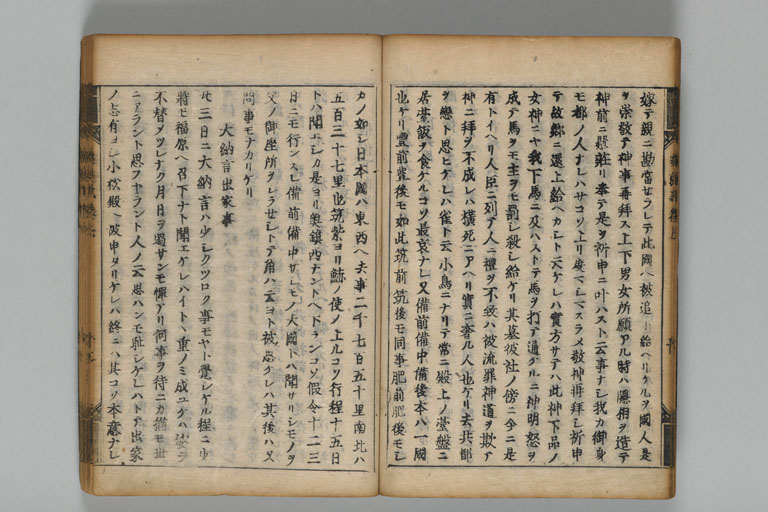 嫁テ親ニ勘當せラレテ此國ヘ被追下給ヘリケルヲ國人是
ヲ崇敬テ神事再拜ス上下男女所願アル時ハ隠相ヲ造テ
神前ニ懸荘リ奉テ是ヲ祈申ニ叶ハスト云事ナシ我カ御身
モ都ノ人ナレハサコソ上リ度マシマスラメ敬神再拜シ祈申
テ故郷ニ還上給ヘカシト云ケレハ實方サテハ此神下品ノ
女神ニヤ我下馬ニ及ハストテ馬ヲ打テ通ケルニ神明怒ヲ
成テ馬ヲモ主ヲモ罰シ殺シ給ケリ其墓彼社ノ傍ニ今ニ是
有トイヘリ人臣ニ列テ人ニ禮ヲ不致ハ被流罪神道ヲ欺テ
神ニ拜ヲ不成レハ横死ニアヘリ實ニ奢ル人也ケリ去共都
ヲ戀ト思ヒケレハ雀ト云小鳥ニナリテ常ニ殿上ノ臺盤ニ
居臺飯ヲ食ケルコソ最哀ナレ又備前備中備後本ハ一國
也ケリ豊前豊後モ如此筑前筑後モ同事肥前肥後モシ
カノ如シ日本國ハ東西ヘ去事二千七百五十里南北ハ
五百三十七里也筑紫ヨリ鯵ノ使ノ上ルコソ行程十五日
トハ聞エシカ是ヨリ奥鎮西ナントヘ下ランコソ假令十二三
日ニモ行ンスレ備前備中サシモノ大國トハ聞サリシモノヲ
父ノ御座所ヲシラセシトテ角ハ云ヨト被思ケレハ其後ハ又
問事モナカリケリ
大納言出家事
廿三日ニ大納言ハ少シクツロク事モヤト覺シケル程ニ少
將モ福原ヘ召下ナト聞エケレハイトヽ重ノミ成ユケハ姿ヲ
不替メツレナク月日ヲ過サンモ憚アリ何事ヲ待ニカ猶モ世
ニアラント思フヤラント人ノ云思ハンモ恥シケレハトテ出家
ノ志有ヨシ小松殿ヘ被申タリケレハ終ニハ其コソ本意ナレ